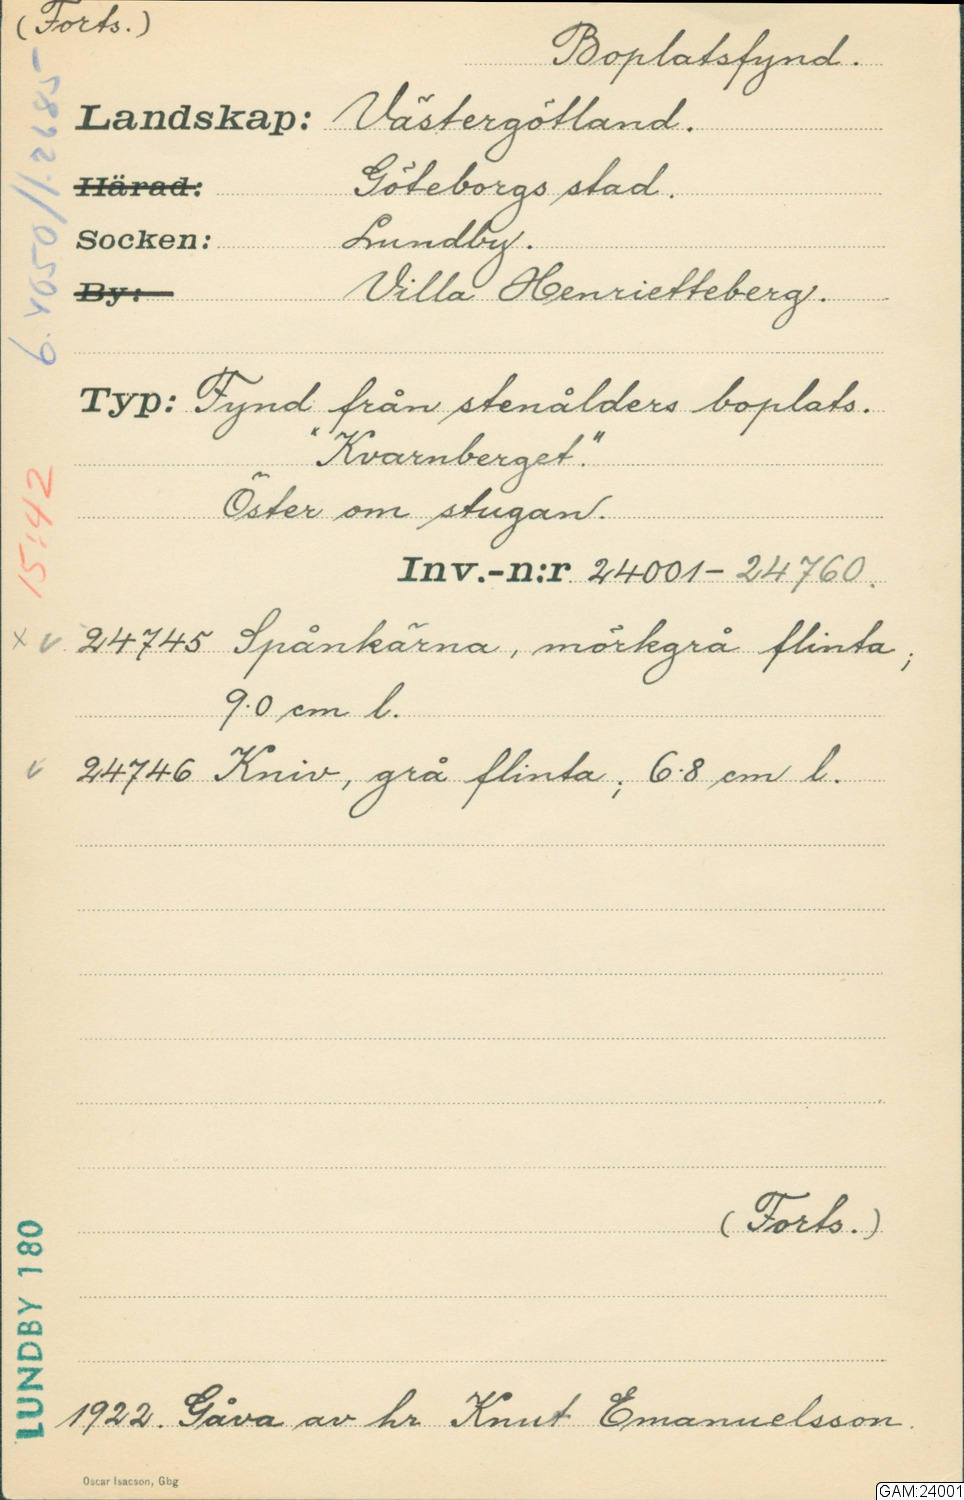 (Forts.)
Boplatsfynd.
Landskap: Västergötland.
Härad: Göteborgs stad.
Socken: Lundby.
By: Villa Henrietteberg.
Typ: Fynd från stenålders boplats.
"Kvarnberget."
Öster om stugan.
Inv.-n:r 24001-24760.
x v 24745 Spånkärna, mörkgrå flinta;
9.0 cm l.
v 24746 Kniv, grå flinta; 6.8 cm l.
(Forts.)
1922. Gåva av hr Knut Emanuelsson.
Oscar Isacson, Gbg
15:42
LUNDBY 180
GAM:24001